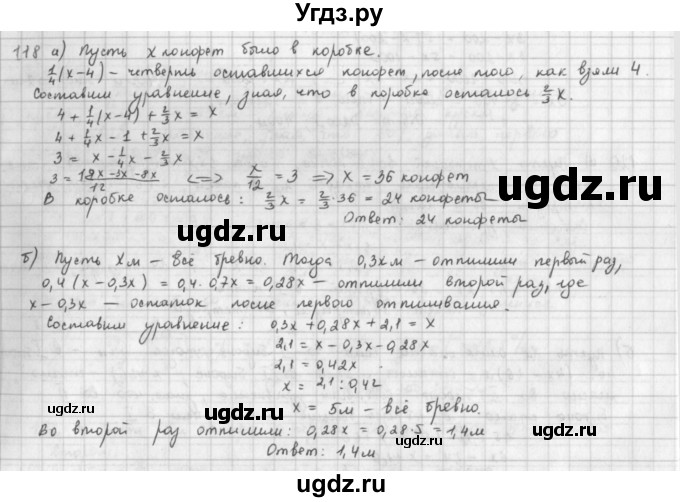 Угдз.ру
118 а) Пусть x конфет было в коробке.
1/4(x-4) - четверть оставшихся конфет, после того, как взяли 4.
Составим уравнение, зная, что в коробке осталось 2/3x.
4 + 1/4(x-4) + 2/3x = x
4 + 1/4x - 1 + 2/3x = x
3 = x - 1/4x - 2/3x
3 = (12x-3x-8x)/12 <=> x/12 = 3 => x = 36 конфет
В коробке осталось: 2/3x = 2/3·36 = 24 конфеты
Ответ: 24 конфеты
ugdz.ru
ugdz.ru
ugdz.ru
б) Пусть xм - всё бревно. Тогда 0,3xм - отпилили первый раз,
0,4(x-0,3x) = 0,4·0,7x = 0,28x - отпилили второй раз, где
x-0,3x - остаток после первого отпиливания.
Составим уравнение: 0,3x+0,28x+2,1 = x
2,1 = x-0,3x-0,28x
2,1 = 0,42x
x = 2,1:0,42
x = 5м - всё бревно.
ugdz.ru
ugdz.ru
Во второй раз отпилили: 0,28x = 0,28·5 = 1,4м
Ответ: 1,4м
ugdz.ru
ugdz.ru